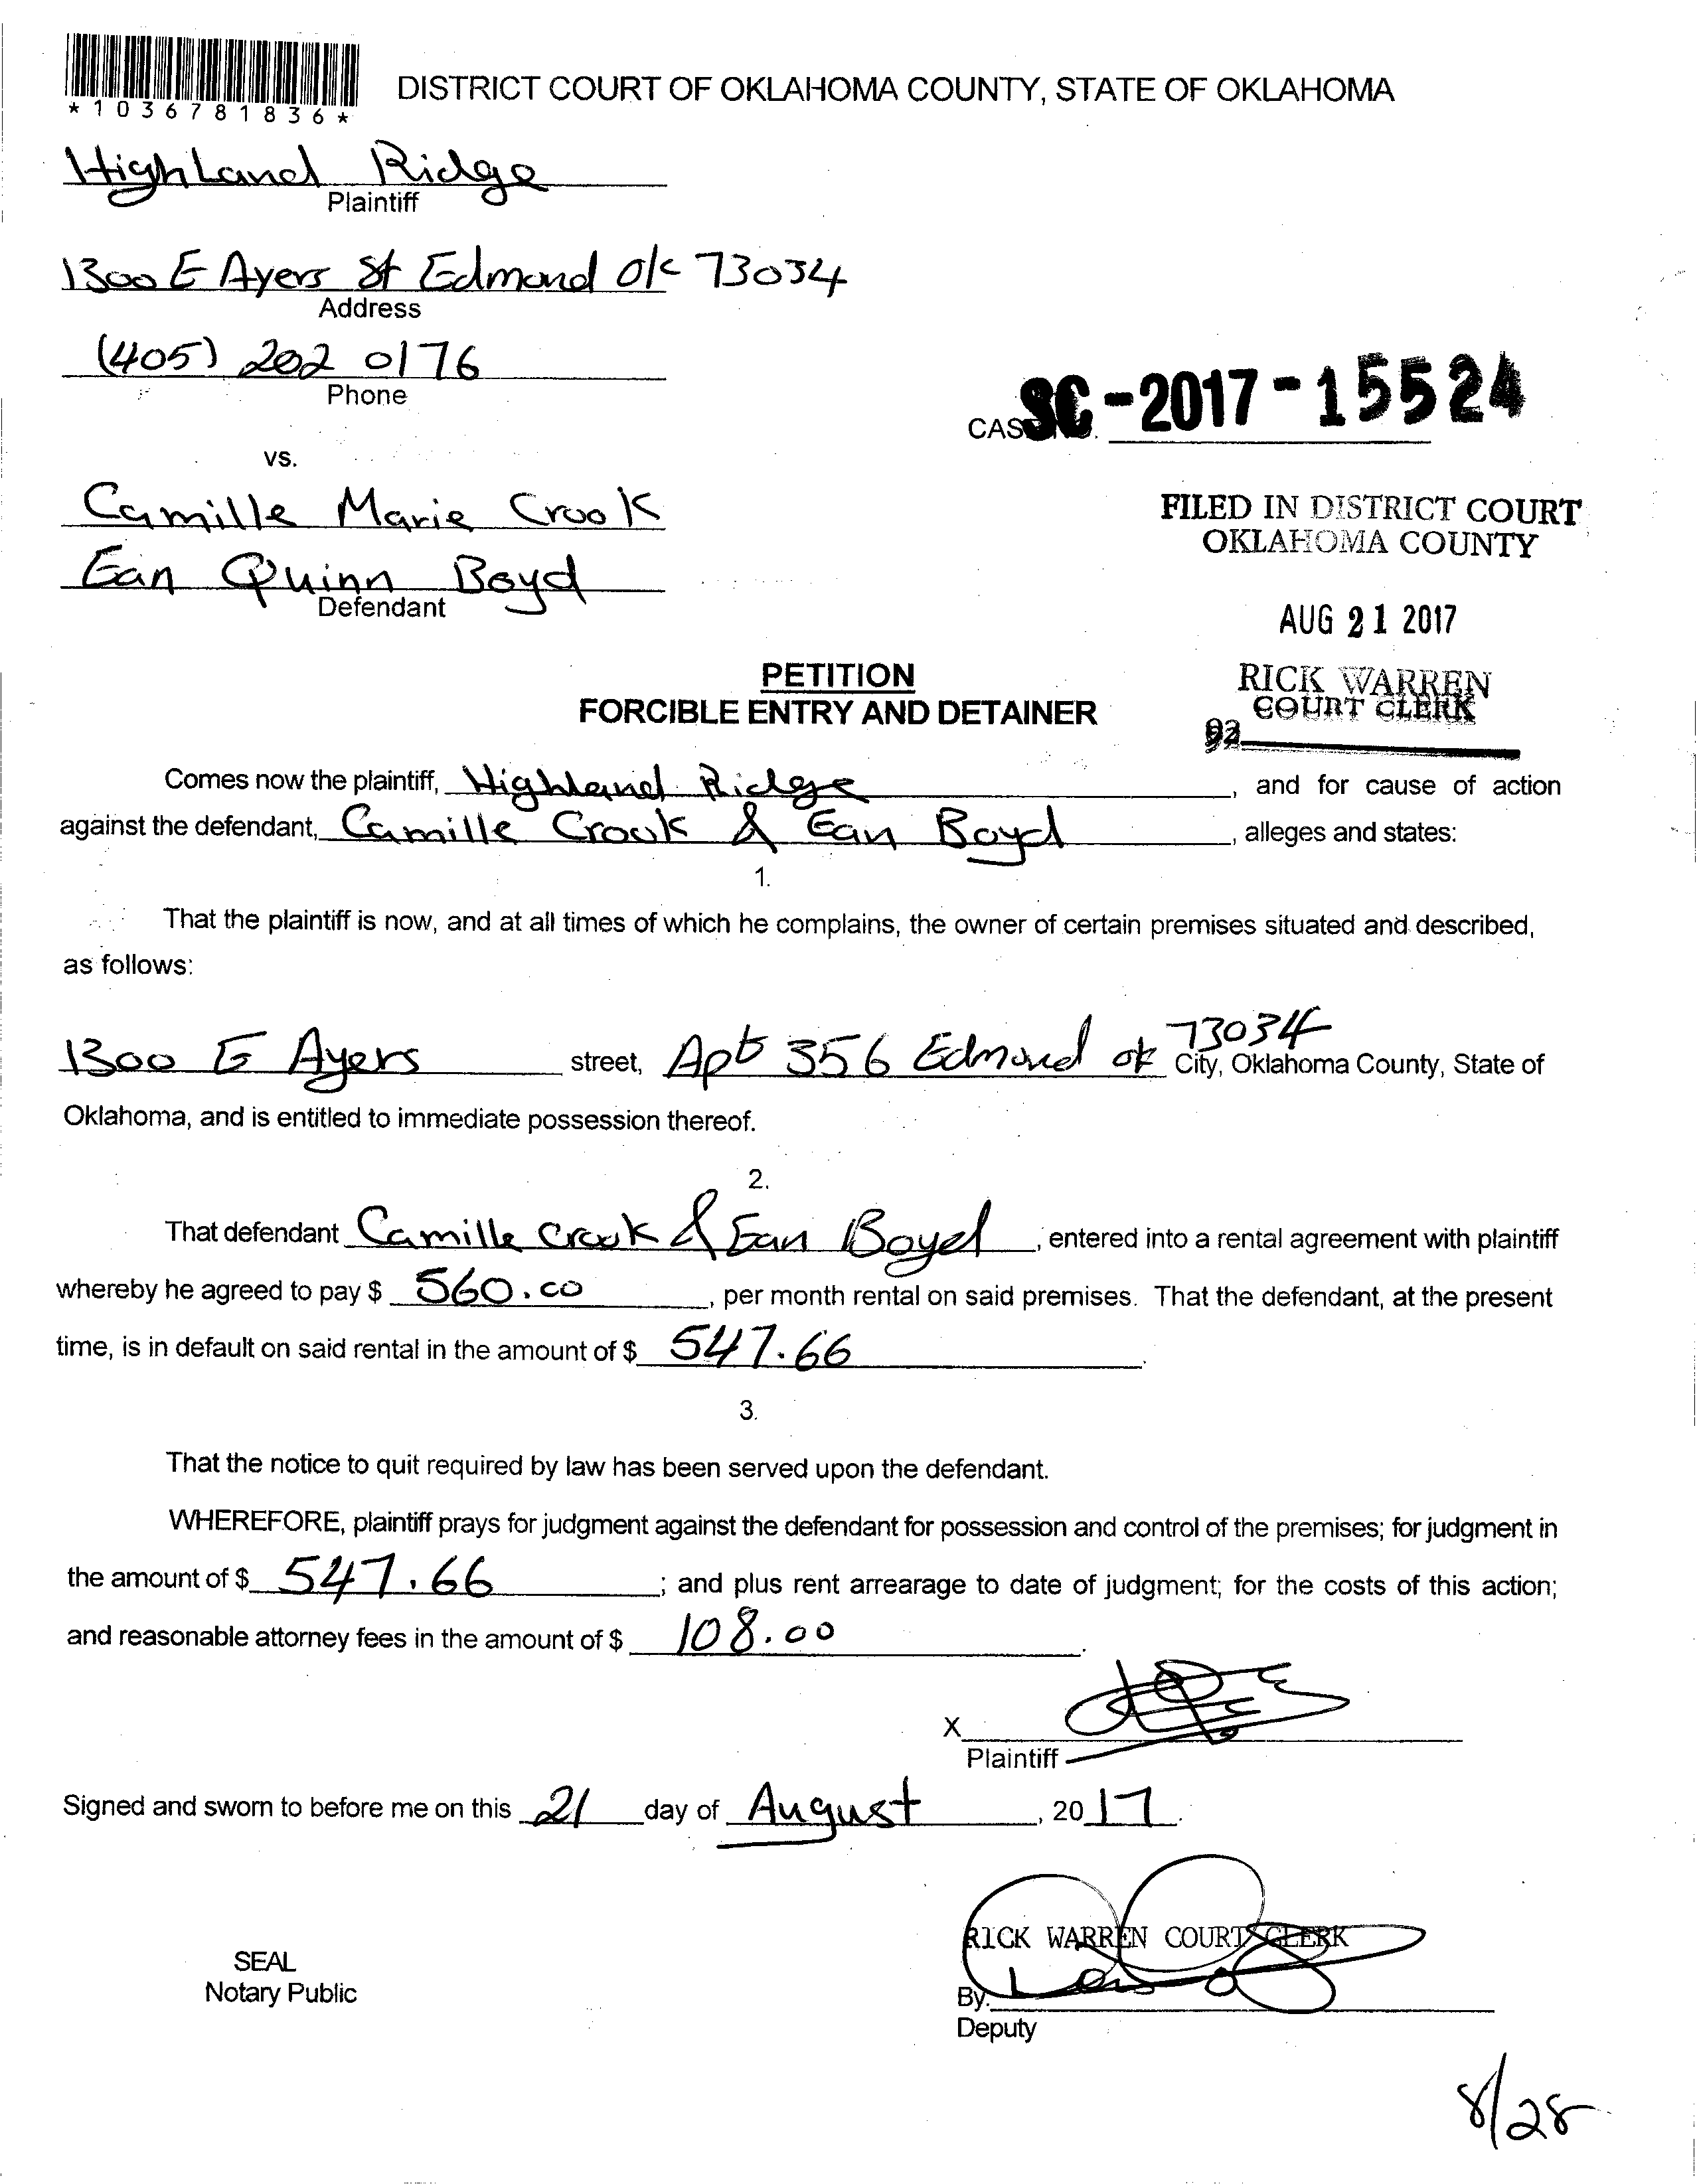 *1036781836*
DISTRICT COURT OF OKLAHOMA COUNTY, STATE OF OKLAHOMA
HighLand Ridge
Plaintiff
1300 E Ayers St Edmond Ok 73034
Address
(405) 202 0176
Phone
CAS NO. SC-2017-15524
vs.
Camille Marie Crook
Ean Quinn Boyd
Defendant
FILED IN DISTRICT COURT
OKLAHOMA COUNTY
AUG 21 2017
RICK WARREN
COURT CLERK
92
PETITION
FORCIBLE ENTRY AND DETAINER
Comes now the plaintiff, Highland Ridge, and for cause of action
against the defendant, Camille Crook & Ean Boyd, alleges and states:
1.
That the plaintiff is now, and at all times of which he complains, the owner of certain premises situated and described,
as follows:
1300 E Ayers street, Apt 356 Edmond ok 73034 City, Oklahoma County, State of
Oklahoma, and is entitled to immediate possession thereof.
2.
That defendant Camille Crook & Ean Boyd, entered into a rental agreement with plaintiff
whereby he agreed to pay $ 560.00, per month rental on said premises. That the defendant, at the present
time, is in default on said rental in the amount of $ 547.66.
3.
That the notice to quit required by law has been served upon the defendant.
WHEREFORE, plaintiff prays for judgment against the defendant for possession and control of the premises; for judgment in
the amount of $ 547.66; and plus rent arrearage to date of judgment; for the costs of this action;
and reasonable attorney fees in the amount of $ 108.00.
X
Plaintiff
Signed and sworn to before me on this 21 day of August, 2017.
RICK WARREN COURT CLERK
SEAL
Notary Public
By.
Deputy
8/28